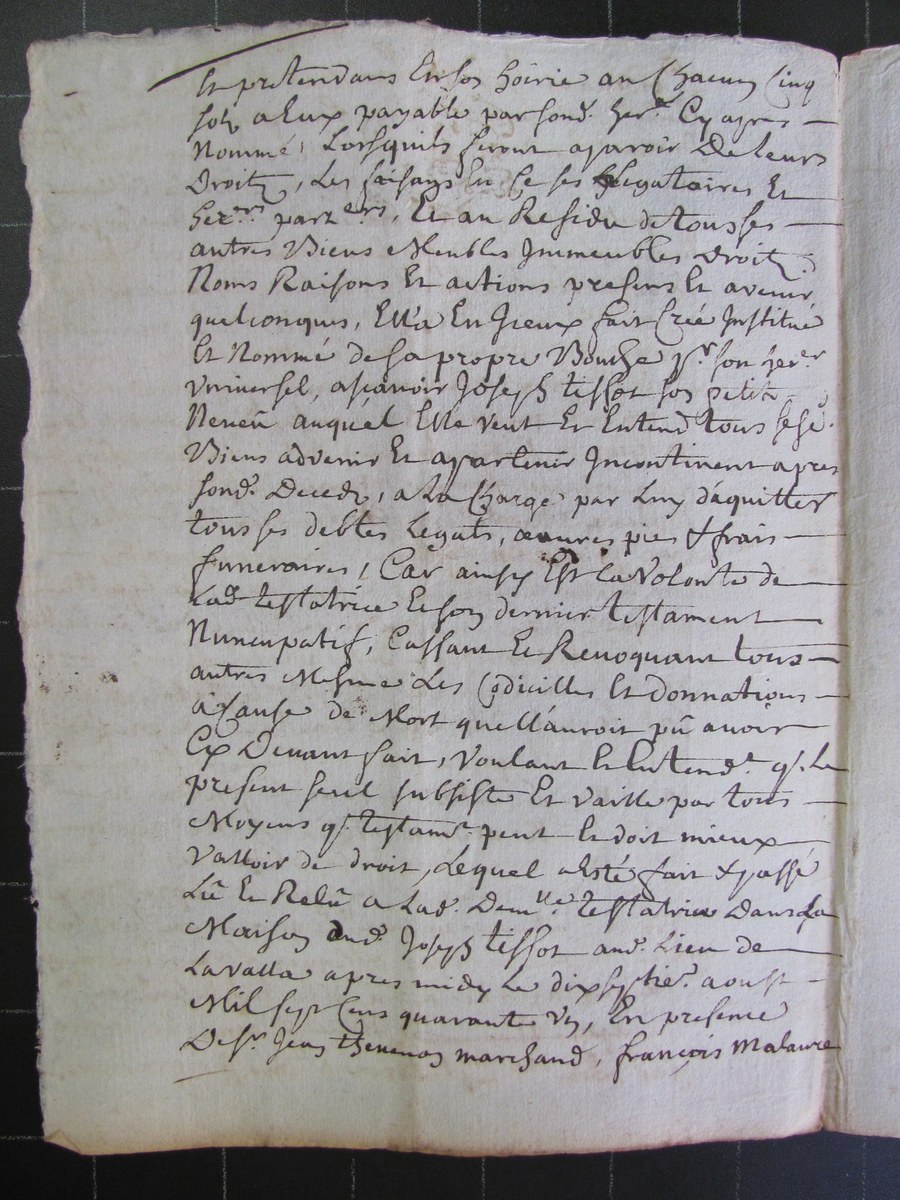 Et pretendans En son hoirie a un Chacun Cinq
sols a Eux payable par sond. her.er Cy apres
Nommé, Lorsquils feront aparoir De leurs
Droitz, Les faisans En Ce ses Legataires Et
her.ers part.ers, Et au Residu de tous ses
autres Biens Meubles Immeubles Droitz
Noms Raisons Et actions presens Et avenir
quelconques, Ella En Iceux fait Créé Institué
Et Nommé de sa propre Bouche p.r son her.er
Universel, ascavoir Joseph tissot son petit
Neveu auquel Elle veut Et Entend tous ses
Biens advenir Et apartenir Incontinent apres
sond. Decedz, a la Charge par Luy d'aquitter
tous ses debtes Legats, œuvres pies & frais
funeraires, Car ainsy Est la Volonte de
Lad. testatrice Et son dernier testament
Nuncupatif, Cassant Et Revoquant tous
autres Mesme Les Codicilles Et Donnations
à Cause de Mort quell'auroit pû avoir
Cy Devant fait, Voulant Et Entend.t q. Le
present seul subsiste Et vaille par tous
Moyens q. testam.t peut Et doit mieux
Valloir de droit, Lequel a Esté fait & passé
Lû Et Relû a Lad. Dem.lle testatrice Dans La
Maison dud. Joseph tissot aud. Lieu de
Lavalla apres midy Le dixseptie.e aoust
Mil sept Cens quarante Un, En presence
De s.r Jean thevenon marchand, françois Matavre